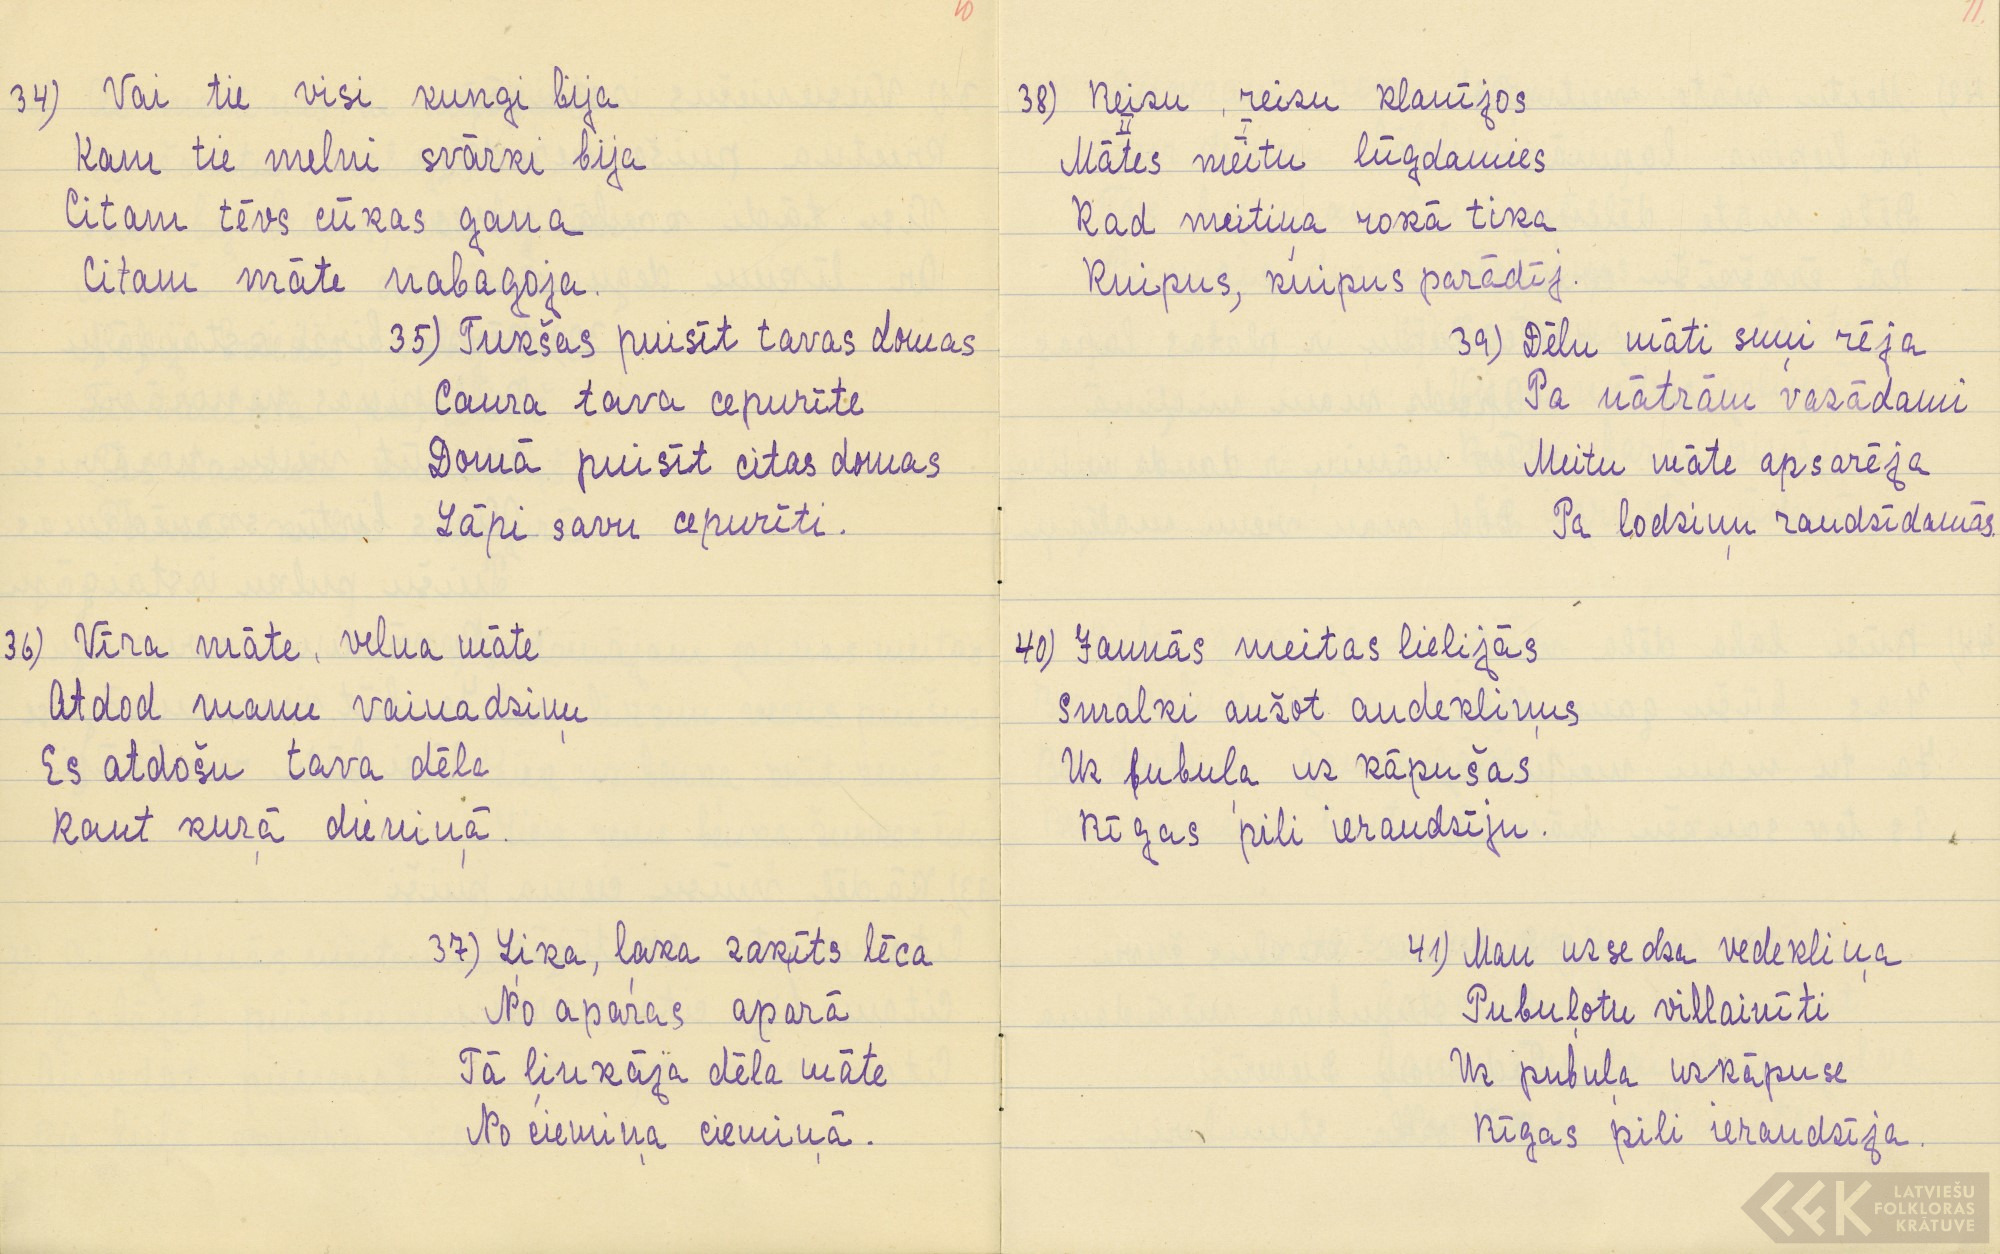 10
34) Vai tie visi kungi bija
Kam tie melni svārki bija
Citam tēvs cūkas gana
Citam māte nabagoja.
35) Tukšas puisīt tavas domas
Caura tava cepurīte
Domā puisīt citas domas
Lāpi savu cepurīti.
36) Vīra māte, velna māte
Atdod manu vainadziņu
Es atdošu tava dēla
Kaut kuŗā dieniņā.
37) Ļika, ļaka zaķīts lēca
No apaŗas aparā
Tā ļinkāja dēla māte
No ciemiņa ciemiņā.
11.
38) Reizu, reizu klanījos
II I
Mātes meitu lūgdamies
Kad meitiņa rokā tika
Knipus, knipus parādīj.
39) Dēlu māti suņi rēja
Pa nātrām vazādami
Meitu māte apsarēja
Pa lodziņu raudzīdamās.
40) Jaunās meitas lielijās
Smalki aužot audekliņus
Uz pubuļa uz kāpušas
Rīgas pili ieraudzīju.
41) Man uzsedza vedekliņa
Pubuļotu villainīti
Uz pubuļa uzkāpuse
Rīgas pili ieraudzīja.
LATVIEŠU
FOLKLORAS
KRĀTUVE